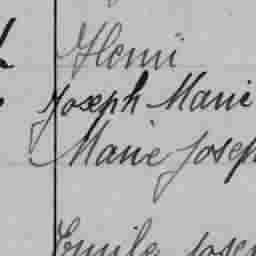 Henri
Joseph Marie
Marie Josep
Emile Jose